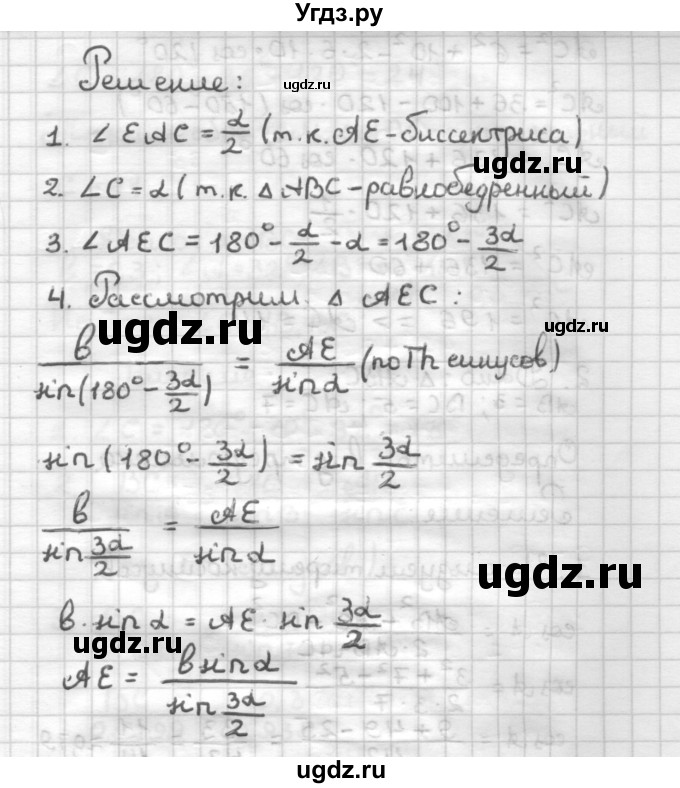 Угдз.ру
Решение:
ugdz.ru
1. ∠EAC = α/2 (т.к. AE - биссектриса)
ugdz.ru
2. ∠C = α (т.к. △ABC - равнобедренный)
3. ∠AEC = 180° - α/2 - α = 180° - 3α/2
4. Рассмотрим △ AEC:
ugdz.ru
ugdz.ru
b/sin(180° - 3α/2) = AE/sin α (по Th синусов)
sin(180° - 3α/2) = sin 3α/2
b/sin 3α/2 = AE/sin α
ugdz.ru
b · sin α = AE · sin 3α/2
ugdz.ru
AE = b sin α/sin 3α/2
ugdz.ru
ugdz.ru